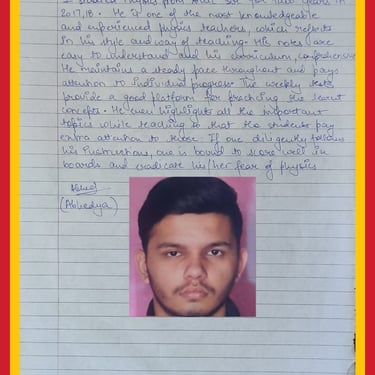 I studied Physics from Sir for two years in
2017,18. He is one of the most knowledgeable
and experienced physics teachers, which reflects
in his style and way of teaching. His notes are
easy to understand and his curriculum, comprehensive.
He maintains a steady pace throughout and pays
attention to individual progress. The weekly tests
provide a good platform for practicing the learnt
concepts. He even highlights all the important
topics while teaching so that the students pay
extra attention to those. If one diligently follows
his instructions, one is bound to score well in
boards and eradicate his/her fear of physics
(Abhedya)